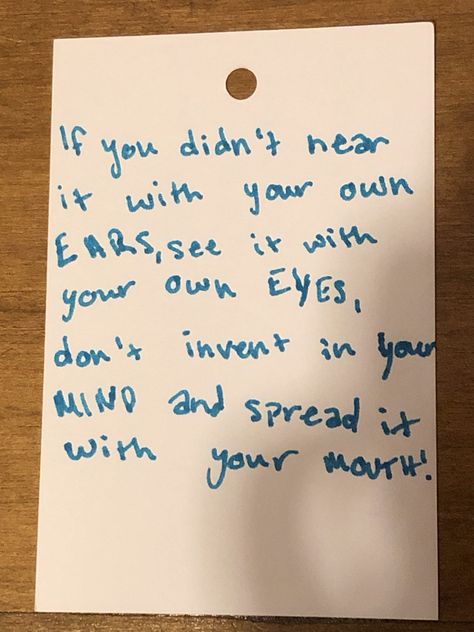 If you didn't hear
it with your own
EARS, see it with
your own EYES,
don't invent in your
MIND and spread it
with your MOUTH!